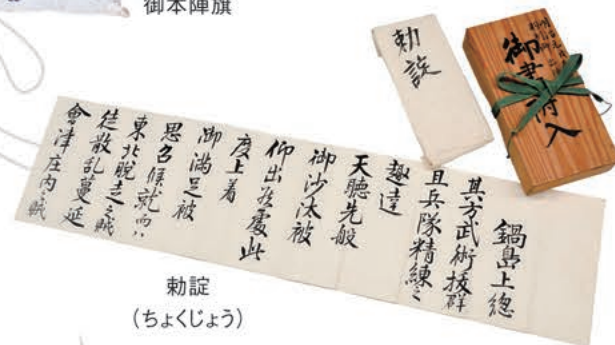 御本陣旗
勅諚
御書附入
鍋島上總
其方武術抜群
且兵隊精練之
趣達
天聴先般
御沙汰被
仰出候處此
度上着
御満足被
思召候就而ハ
東北脱走之賊
徒散乱蔓延
會津庄内之賊
勅諚
(ちょくじょう)